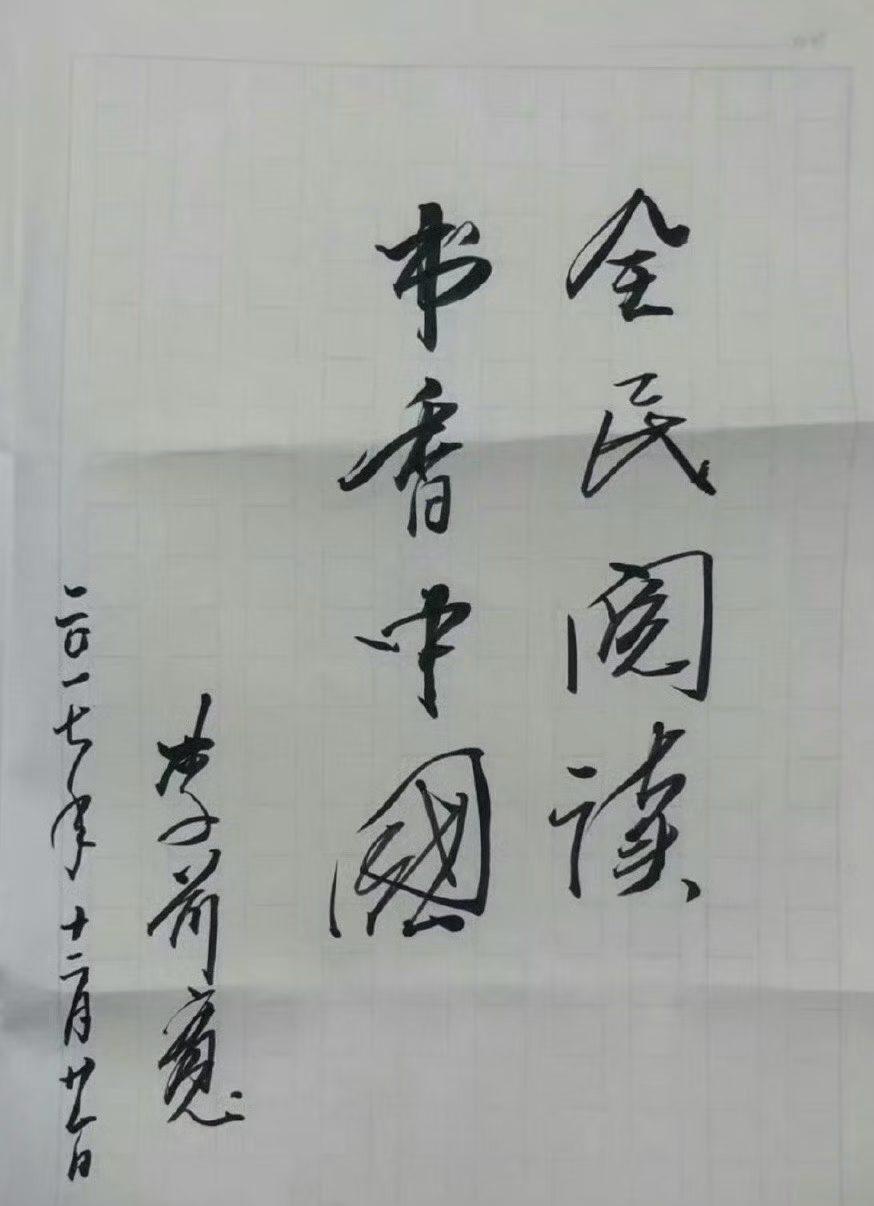 全民阅读
书香中國
李前寬
二〇一七年十二月廿日